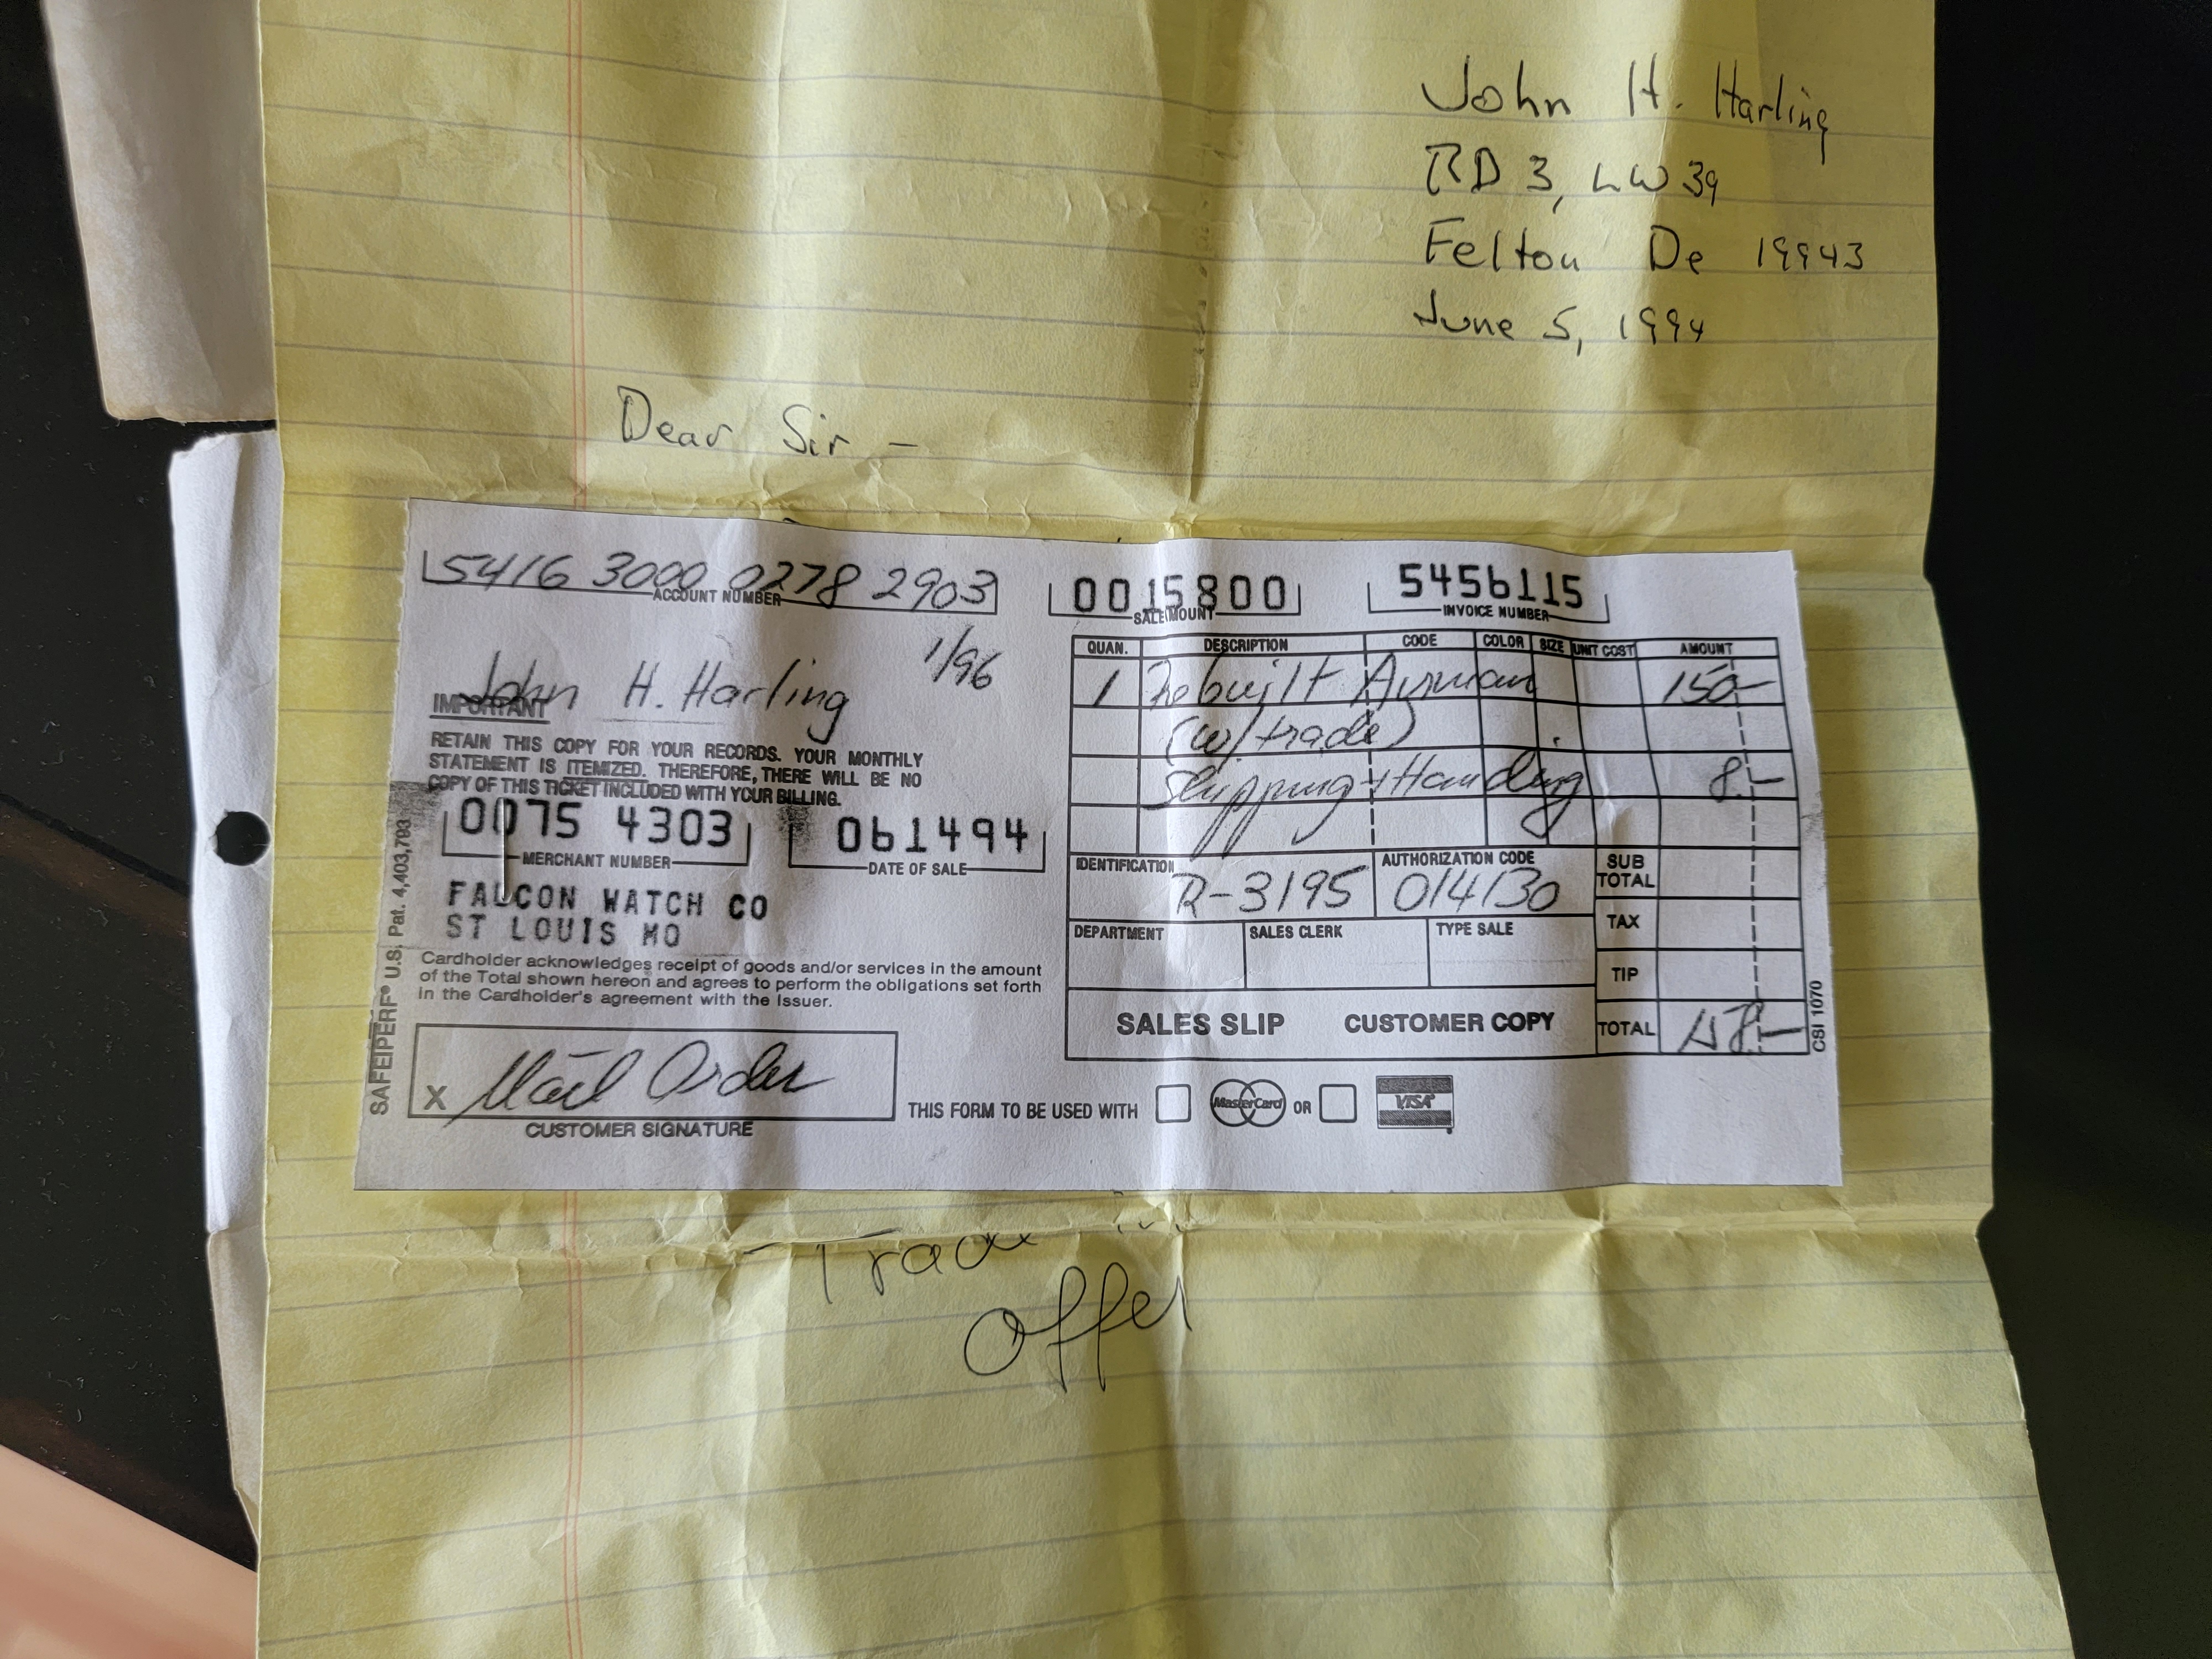 John H. Harling
RD 3, LW 39
Felton De 19943
June 5, 1994
Dear Sir -
5416 3000 0278 2903
ACCOUNT NUMBER
0015800
SALE AMOUNT
5456115
INVOICE NUMBER
1/96
John H. Harling
IMPORTANT
RETAIN THIS COPY FOR YOUR RECORDS. YOUR MONTHLY
STATEMENT IS ITEMIZED. THEREFORE, THERE WILL BE NO
COPY OF THIS TICKET INCLUDED WITH YOUR BILLING.
0075 4303
MERCHANT NUMBER
061494
DATE OF SALE
FALCON WATCH CO
ST LOUIS MO
Cardholder acknowledges receipt of goods and/or services in the amount
of the Total shown hereon and agrees to perform the obligations set forth
in the Cardholder's agreement with the Issuer.
X Mail Order
CUSTOMER SIGNATURE
SAFEIPERF® U.S. Pat. 4,403,793
QUAN. DESCRIPTION CODE COLOR SIZE UNIT COST AMOUNT
1 Rebuilt Airman 150-
(w/trade)
Shipping + Handling 8.-
IDENTIFICATION R-3195
AUTHORIZATION CODE 014130
SUB TOTAL
DEPARTMENT SALES CLERK TYPE SALE
TAX
TIP
SALES SLIP CUSTOMER COPY
TOTAL 158.-
CSI 1070
THIS FORM TO BE USED WITH MasterCard OR VISA
Trade in
Offer